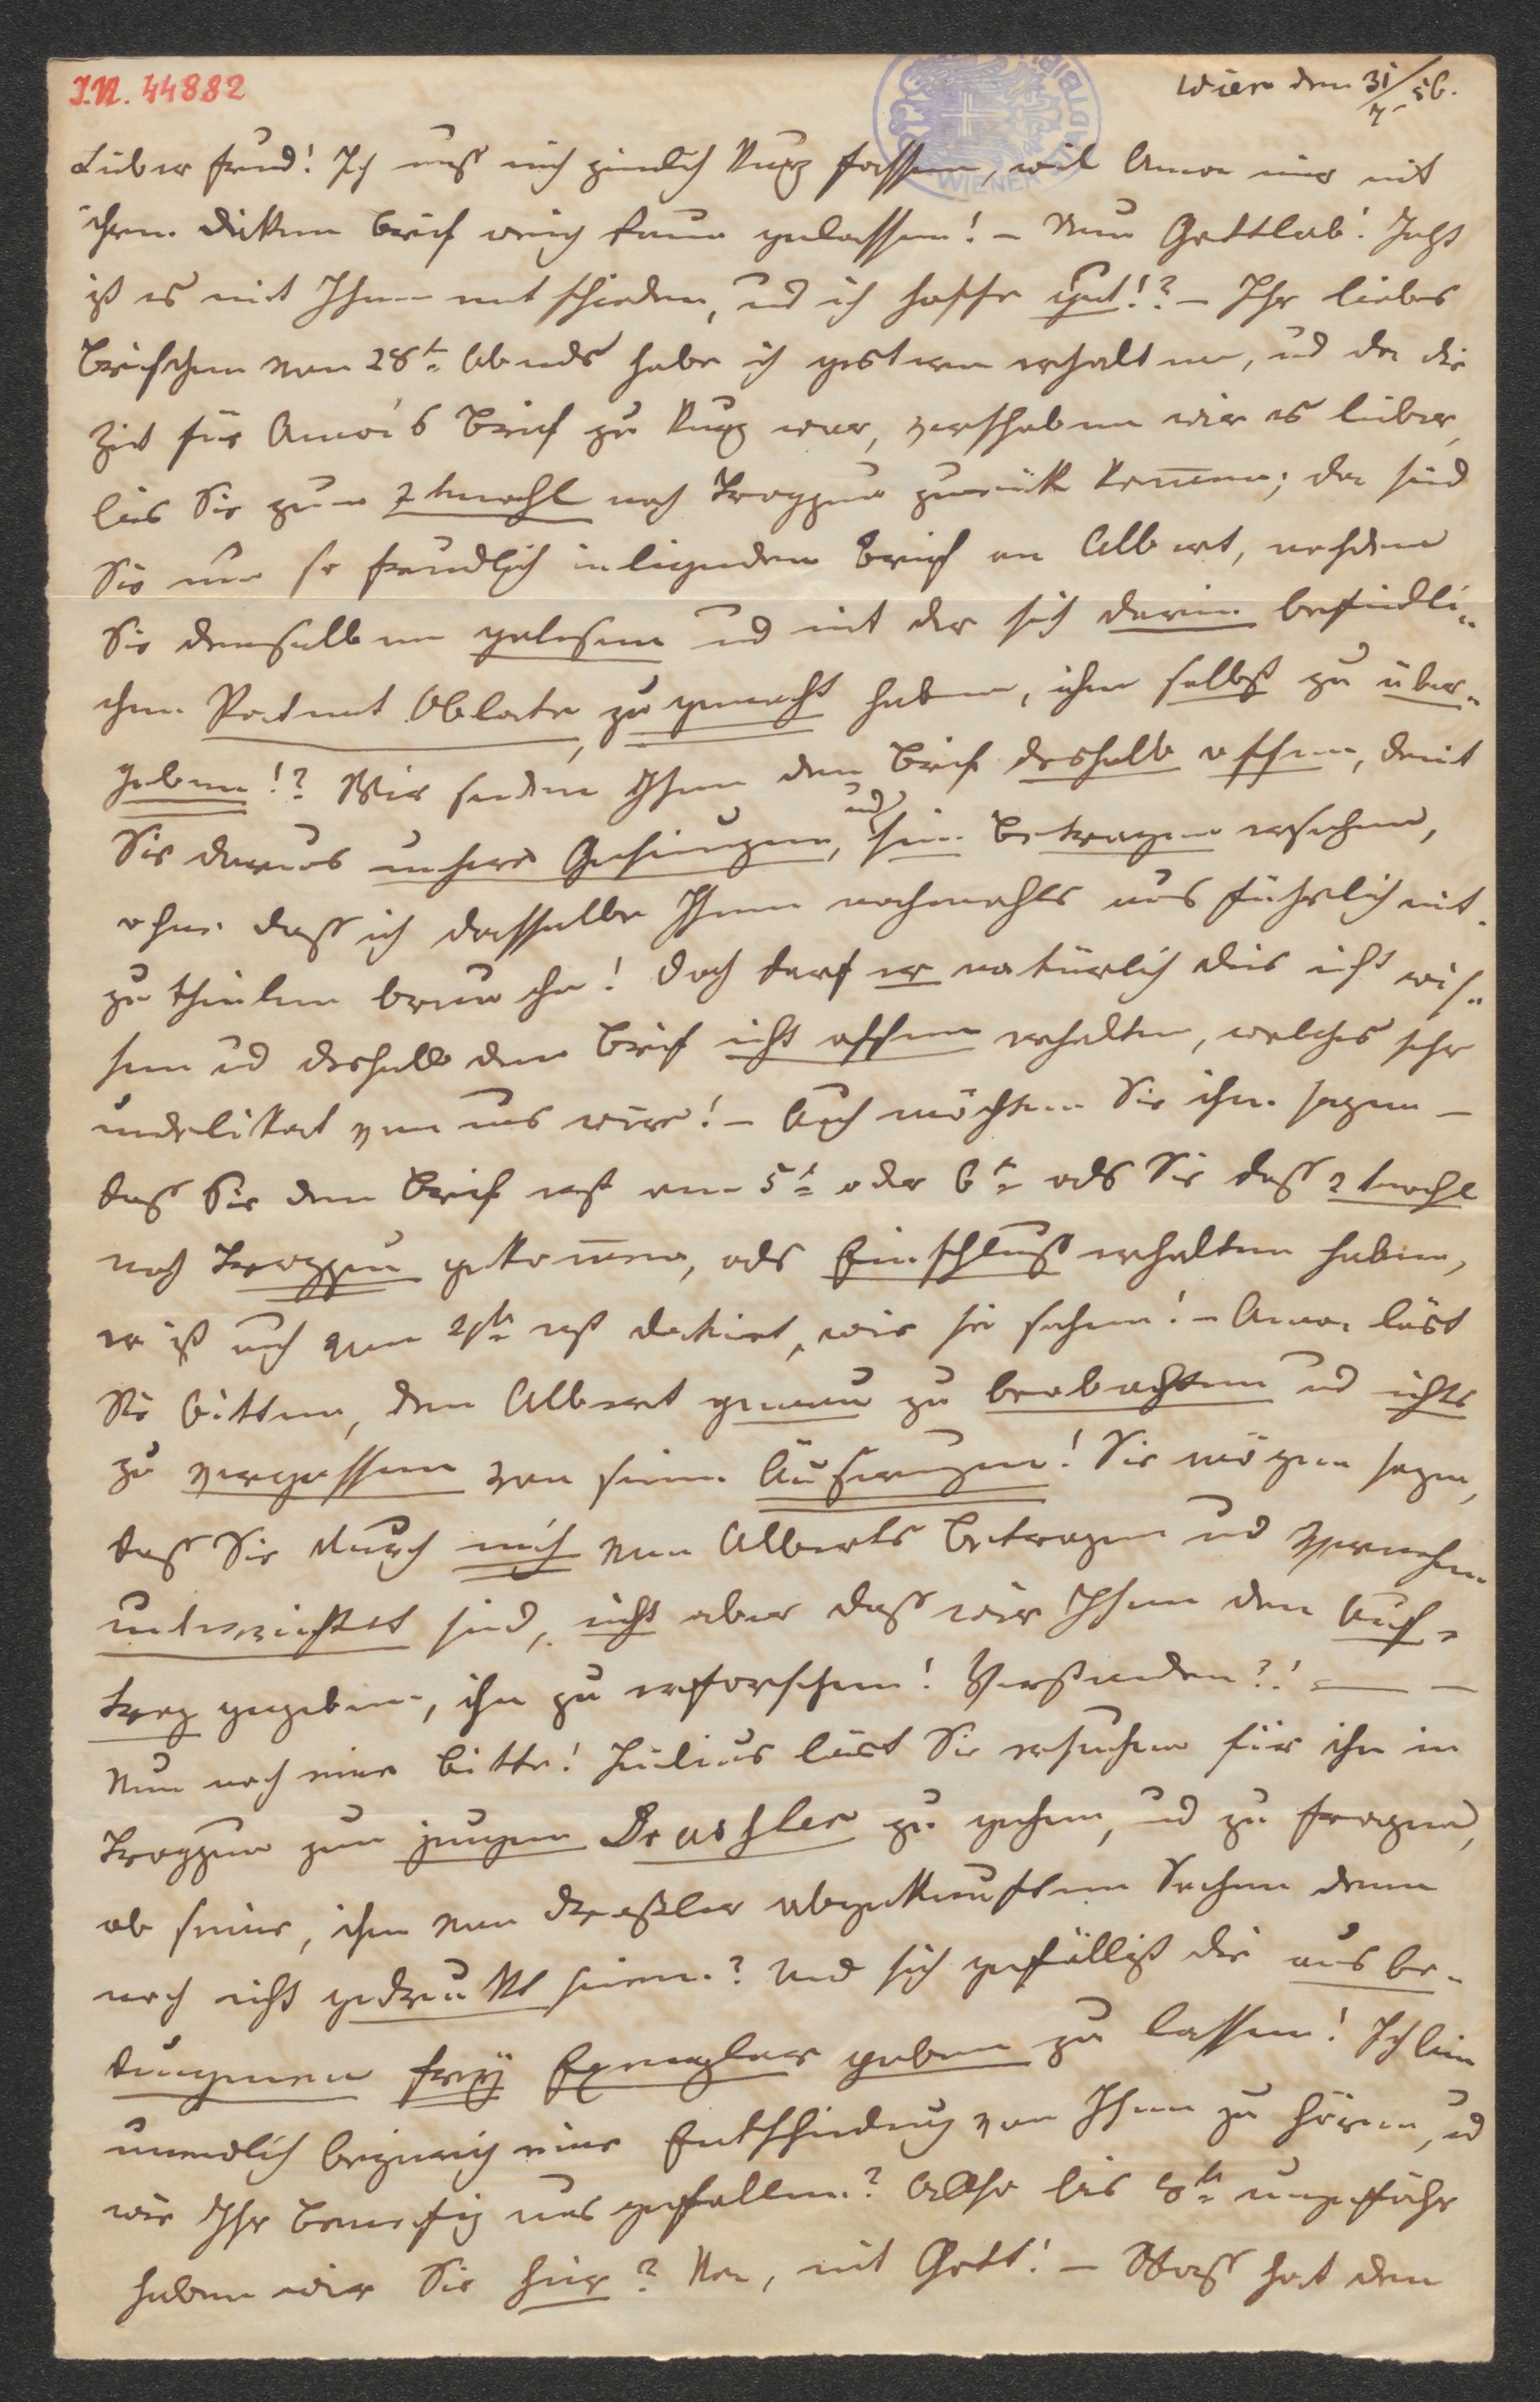 I.N. 44882
Wien den 31/7 56.
WIENER
Lieber Freund! Ich muß mich ziemlich kurz fassen, weil Anna mir mit
ihrem dicken Brief wenig Raum gelassen! – Nun Gottlob! Jetzt
ist es mit Ihnen entschieden, und ich hoffe gut!? – Ihr liebes
Briefchen vom 28t Abends habe ich gestern erhalten, und da die
Zeit für Anna's Brief zu kurz war, verschoben wir es lieber,
bis Sie zum 2tmahl nach Troppau zurück kommen; da sind
Sie nun so freundlich inliegenden Brief an Albert, nachdem
Sie denselben gelesen und mit der sich darin befindli=
chen Patent Oblate, zu gemacht haben, ihm selbst zu über=
geben!? Wir senden Ihnen den Brief deshalb offen, damit
Sie daraus unsere Gesinnungen, und sein Betragen ersehen,
ohne daß ich dasselbe Ihnen nochmahls ausführlich mit=
zu theilen brauche! Doch darf er natürlich dies nicht wis=
sen und deshalb den Brief nicht offen erhalten, welches sehr
undelikat von uns wäre! – Auch möchten Sie ihm sagen –
daß Sie den Brief erst am 5t oder 6t als Sie daß 2tmahl
nach Troppau gekommen, als Einschluß erhalten haben,
er ist auch vom 4t erst datirt, wie sie sehen! – Anna läst
Sie bitten, den Albert genau zu beobachten und nichts
zu vergessen von seinen Äußerungen! Sie mögen sagen,
daß Sie durch mich von Alberts Betragen und Benehmen
unterrichtet sind, nicht aber daß wir Ihnen den Auf=
trag gegeben, ihn zu erforschen! Verstanden?! — –
Nun noch eine Bitte! Julius läst Sie ersuchen für ihn in
Troppau zum jungen Drassler zu gehen, und zu fragen,
ob seine, ihm von Dreßler abgekauften Sachen denn
noch nicht gedruckt seien? Und sich gefälligst die ausbe=
dungenen frey Exemplar geben zu lassen! Ich bin
unendlich begierig eine Entscheidung von Ihnen zu hören, und
wie Ihr Benefiz ausgefallen? Also bis 8t ungefähr
haben wir Sie hier? Na, mit Gott! – Stoß hat den